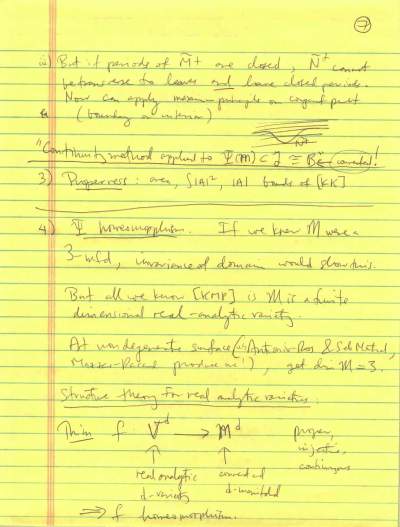 7
ii) But if periods of M̃+ are closed, Ñ+ cannot
be transverse to leaves and have closed periods.
Now can apply maximum principle on compact part
(boundary or interior)
N+
"Continuity method applied to Ψ(M) ⊂ J ≅ B connected!
3) Properness: area, ∫|A|², |A| bounds of [KK]
4) Ψ homeomorphism. If we knew M were a
3-mfd, invariance of domain would show this.
But all we know [KMP] is M is a finite
dimensional real-analytic variety.
At nondegenerate surface ("Antonio Ros &
produce one!"), get dim M = 3.
Structure theory for real analytic varieties.
Thm f V^d → M^d proper,
injective,
continuous
↑ ↑
real analytic connected
d-variety d-manifold
⇒ f homeomorphism.